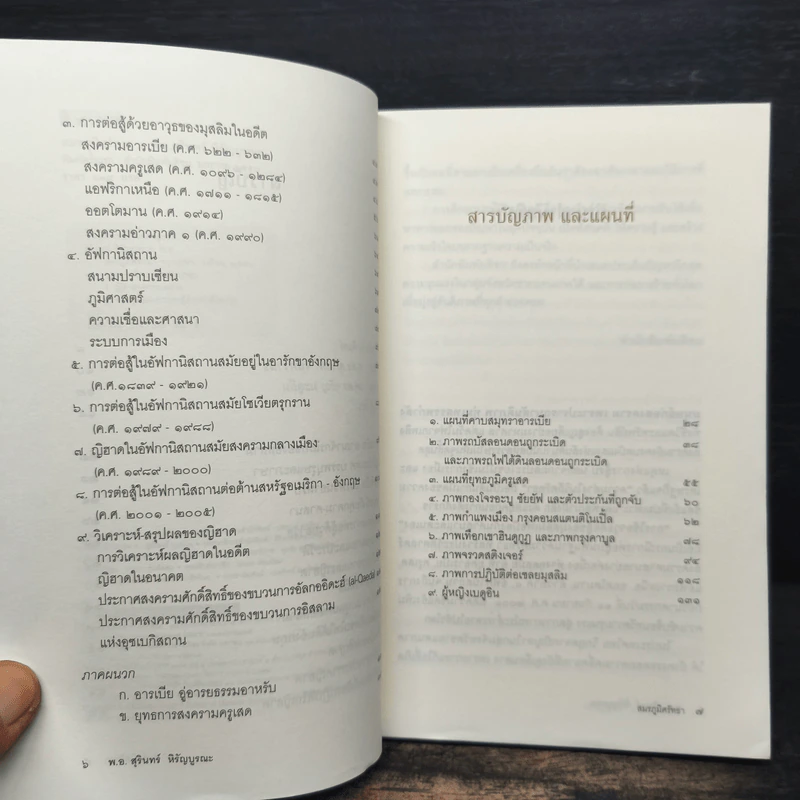 ๓. การต่อสู้ด้วยอาวุธของมุสลิมในอดีต
สงครามอารเบีย (ค.ศ. ๖๒๒ - ๖๓๒)
สงครามครูเสด (ค.ศ. ๑๐๙๖ - ๑๒๘๔)
แอฟริกาเหนือ (ค.ศ. ๑๗๑๑ - ๑๘๑๕)
ออตโตมาน (ค.ศ. ๑๙๑๔)
สงครามอ่าวภาค ๑ (ค.ศ. ๑๙๙๐)
๔. อัฟกานิสถาน
สนามปราบเซียน
ภูมิศาสตร์
ความเชื่อและศาสนา
ระบบการเมือง
๕. การต่อสู้ในอัฟกานิสถานสมัยอยู่ในอารักขาอังกฤษ
(ค.ศ.๑๘๓๙ - ๑๙๒๑)
๖. การต่อสู้ในอัฟกานิสถานสมัยโซเวียตรุกราน
(ค.ศ. ๑๙๗๙ - ๑๙๘๘)
๗. ญิฮาดในอัฟกานิสถานสมัยสงครามกลางเมือง
(ค.ศ. ๑๙๘๙ - ๒๐๐๐)
๘. การต่อสู้ในอัฟกานิสถานต่อต้านสหรัฐอเมริกา - อังกฤษ
(ค.ศ. ๒๐๐๑ - ๒๐๐๕)
๙. วิเคราะห์-สรุปผลของญิฮาด
การวิเคราะห์ผลญิฮาดในอดีต
ญิฮาดในอนาคต
ประกาศสงครามศักดิ์สิทธิ์ของขบวนการอัลกออิดะฮ์ (al-Qaeda)
ประกาศสงครามศักดิ์สิทธิ์ของขบวนการอิสลาม
แห่งอุซเบกิสถาน
ภาคผนวก
ก. อารเบีย อู่อารยธรรมอาหรับ
ข. ยุทธการสงครามครูเสด
๖ พ.อ. สุรินทร์ หิรัญบูรณะ
สารบัญภาพ และแผนที่
๑. แผนที่คาบสมุทราอารเบีย ๒๘
๒. ภาพรถบัสลอนดอนถูกระเบิด ๓๘
และภาพรถไฟใต้ดินลอนดอนถูกระเบิด
๓. แผนที่ยุทธภูมิครูเสด ๕๕
๔. ภาพกองโจรอะบู ซัยยัฟ และตัวประกันที่ถูกจับ ๖๐
๕. ภาพกำแพงเมือง กรุงคอนสแตนติโนเปิ้ล ๖๒
๖. ภาพเทือกเขาฮินดูกูฏ และภาพกรุงคาบูล ๗๘
๗. ภาพจรวดสติงเจอร์ ๙๔
๘. ภาพการปฏิบัติต่อเชลยมุสลิม ๑๑๘
๙. ผู้หญิงเบดูอิน ๑๓๑
๗